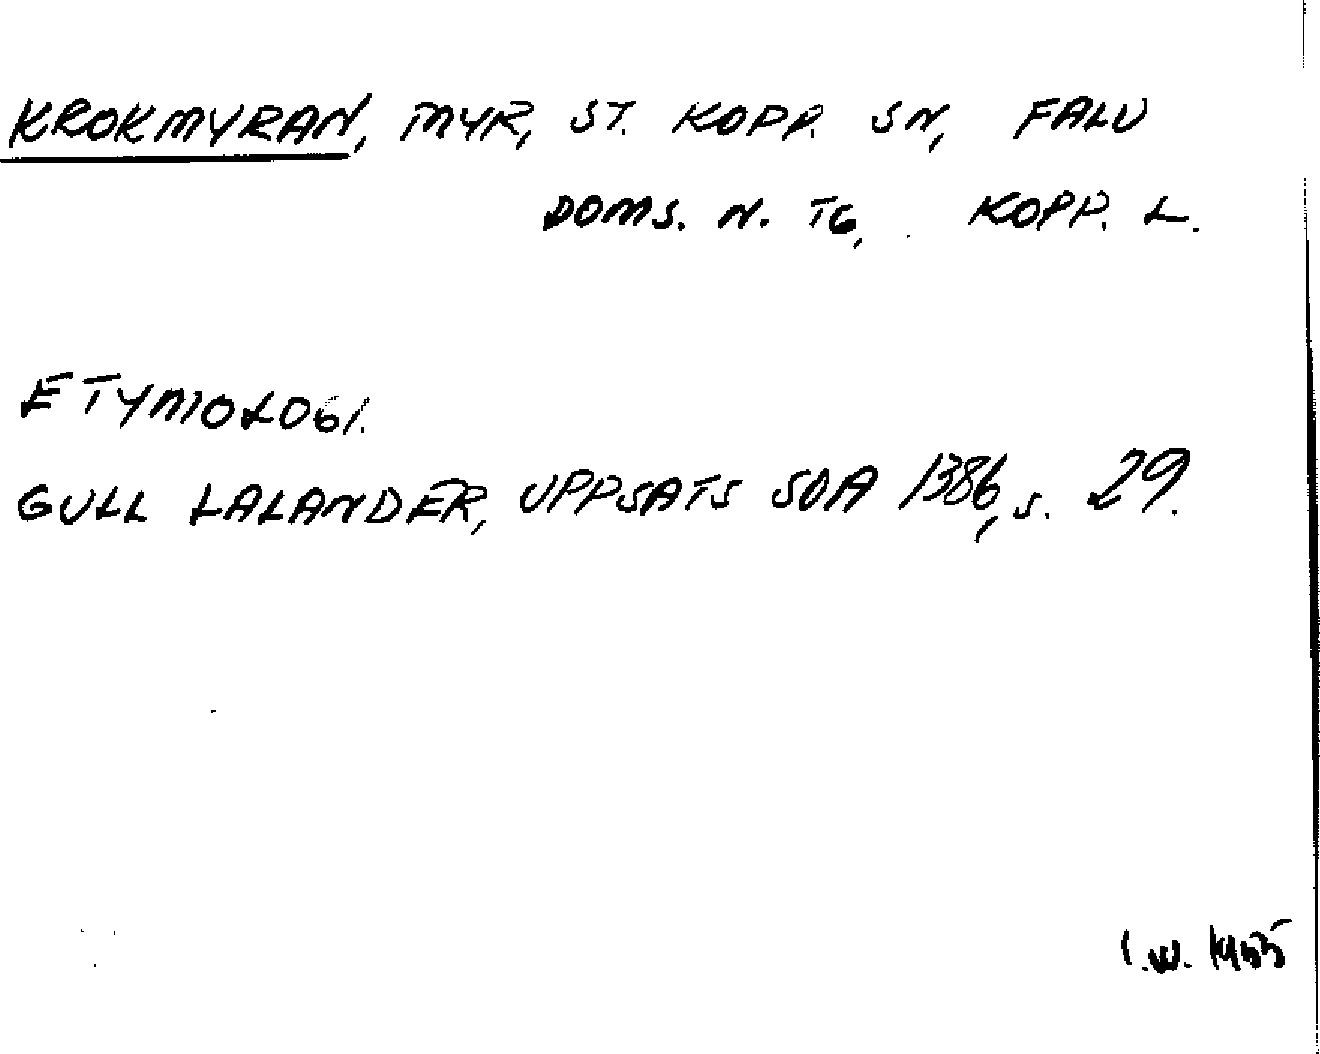 KROKMYRAN, MYR, ST. KOPP. SN, FALU
DOMS. N. TG, KOPP. L.
ETYMOLOGI.
GULL LALANDER, UPPSATS SOA 1386, S. 29.
I.W.